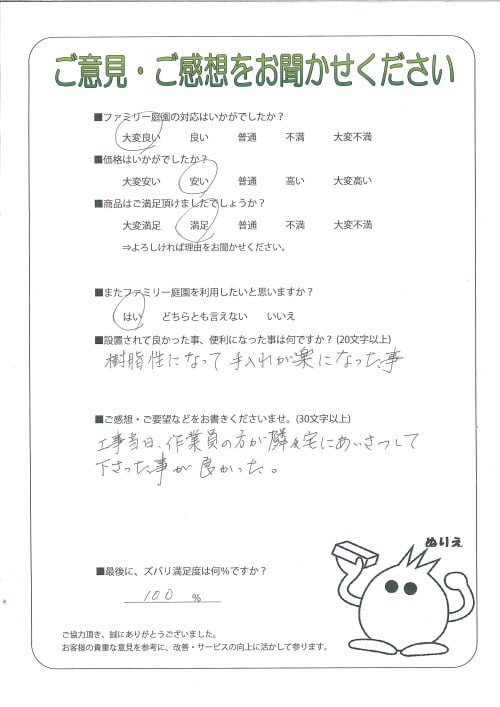 ご意見・ご感想をお聞かせください
■ファミリー庭園の対応はいかがでしたか？
大変良い 良い 普通 不満 大変不満
■価格はいかがでしたか？
大変安い 安い 普通 高い 大変高い
■商品はご満足頂けましたでしょうか？
大変満足 満足 普通 不満 大変不満
⇒よろしければ理由をお聞かせください。
■またファミリー庭園を利用したいと思いますか？
はい どちらとも言えない いいえ
■設置されて良かった事、便利になった事は何ですか？（20文字以上）
樹脂性になって手入れが楽になった事
■ご感想・ご要望などをお書きくださいませ。（30文字以上）
工事当日、作業員の方が隣々宅にあいさつして
下さった事が良かった。
ぬりえ
■最後に、ズバリ満足度は何％ですか？
100 %
ご協力頂き、誠にありがとうございました。
お客様の貴重な意見を参考に、改善・サービスの向上に活かして参ります。